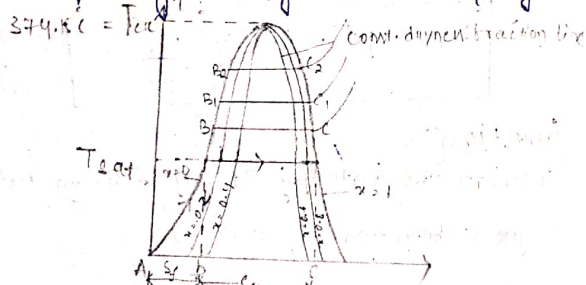 374.15°C = Tcr
const. dryness fraction line
B2
C2
B1
C1
B
C
Tsat
x=0
x=1
x=0.2
x=0.4
x=0.6
x=0.8
A
Sf
B
C